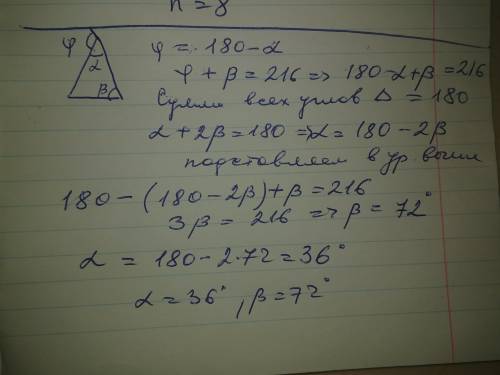 n = 8
φ
α
β
φ = 180 - α
φ + β = 216 => 180 - α + β = 216
Сумма всех углов Δ = 180
α + 2β = 180 => α = 180 - 2β
подставляем в ур. выше
180 - (180 - 2β) + β = 216
3β = 216 => β = 72°
α = 180 - 2·72 = 36°
α = 36°, β = 72°